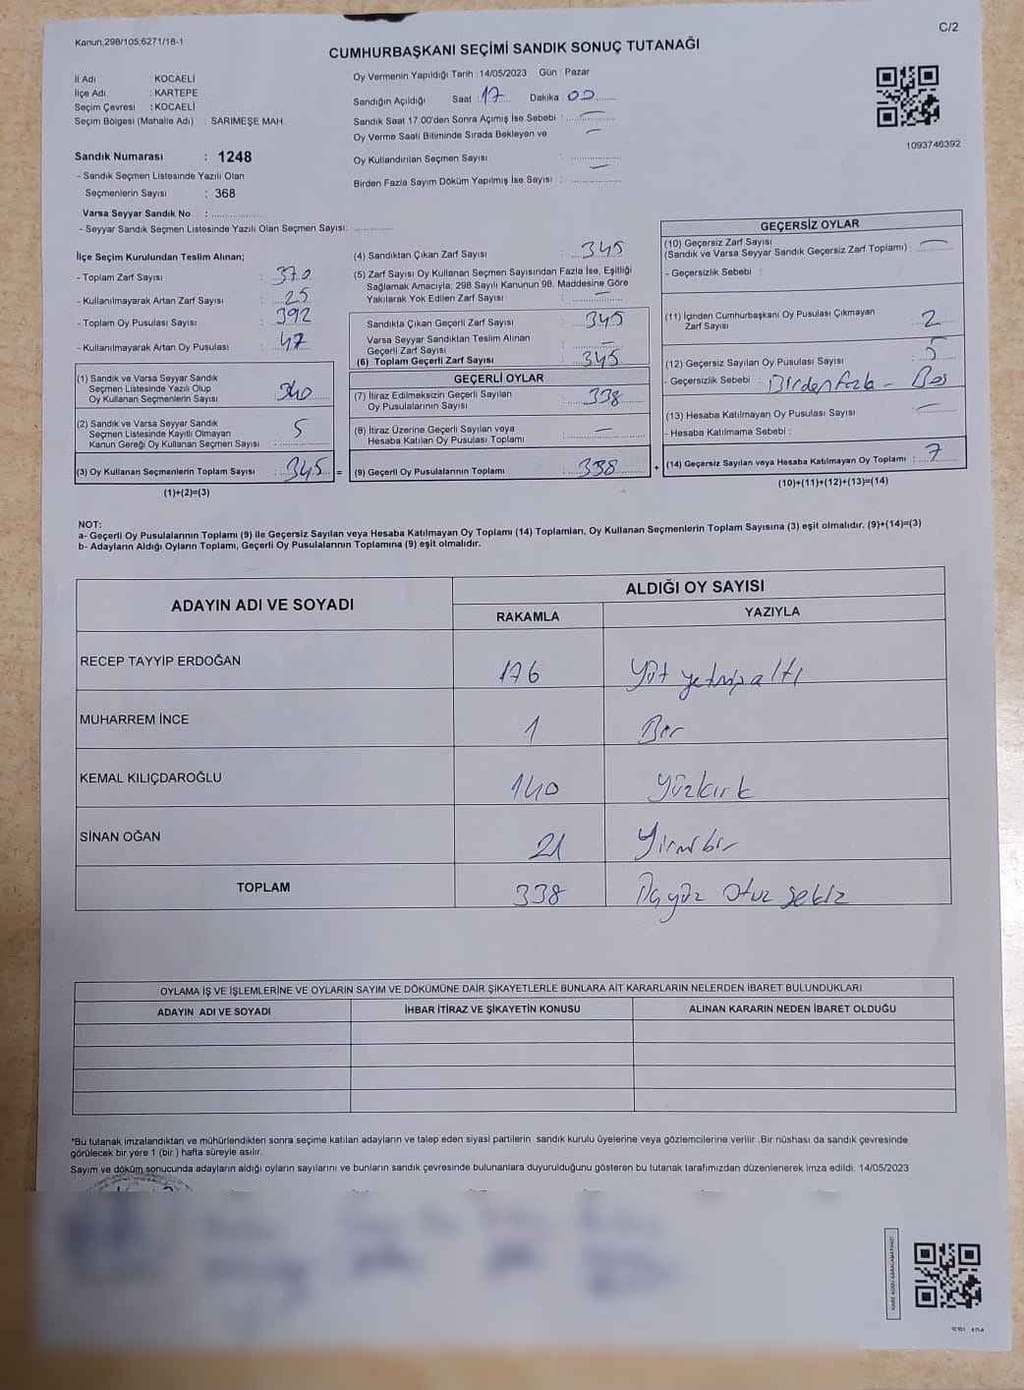 Kanun,298/105;6271/18-1
C/2
CUMHURBAŞKANI SEÇİMİ SANDIK SONUÇ TUTANAĞI
İl Adı : KOCAELİ
İlçe Adı : KARTEPE
Seçim Çevresi : KOCAELİ
Seçim Bölgesi (Mahalle Adı) : SARIMEŞE MAH.
Oy Vermenin Yapıldığı Tarih :14/05/2023 Gün : Pazar
Sandığın Açıldığı Saat : 17 Dakika : 00
Sandık Saat 17:00'den Sonra Açımış İse Sebebi : —
Oy Verme Saati Bitiminde Sırada Bekleyen ve —
Oy Kullandırılan Seçmen Sayısı
Birden Fazla Sayım Döküm Yapılmış İse Sayısı : —
1093746392
Sandık Numarası : 1248
- Sandık Seçmen Listesinde Yazılı Olan
Seçmenlerin Sayısı : 368
Varsa Seyyar Sandık No :
- Seyyar Sandık Seçmen Listesinde Yazılı Olan Seçmen Sayısı:
İlçe Seçim Kurulundan Teslim Alınan;
- Toplam Zarf Sayısı : 370
- Kullanılmayarak Artan Zarf Sayısı : 25
- Toplam Oy Pusulası Sayısı : 392
- Kullanılmayarak Artan Oy Pusulası : 47
(1) Sandık ve Varsa Seyyar Sandık
Seçmen Listesinde Yazılı Olup
Oy Kullanan Seçmenlerin Sayısı : 340
(2) Sandık ve Varsa Seyyar Sandık
Seçmen Listesinde Kayıtlı Olmayan
Kanun Gereği Oy Kullanan Seçmen Sayısı : 5
(3) Oy Kullanan Seçmenlerin Toplam Sayısı : 345 =
(1)+(2)=(3)
(4) Sandıktan Çıkan Zarf Sayısı : 345
(5) Zarf Sayısı Oy Kullanan Seçmen Sayısından Fazla İse, Eşitliği
Sağlamak Amacıyla, 298 Sayılı Kanunun 98. Maddesine Göre
Yakılarak Yok Edilen Zarf Sayısı : —
Sandıkta Çıkan Geçerli Zarf Sayısı : 345
Varsa Seyyar Sandıktan Teslim Alınan
Geçerli Zarf Sayısı : —
(6) Toplam Geçerli Zarf Sayısı : 345
GEÇERLİ OYLAR
(7) İtiraz Edilmeksizin Geçerli Sayılan
Oy Pusulalarının Sayısı : 338
(8) İtiraz Üzerine Geçerli Sayılan veya
Hesaba Katılan Oy Pusulası Toplamı : —
(9) Geçerli Oy Pusulalarının Toplamı : 338 +
GEÇERSİZ OYLAR
(10) Geçersiz Zarf Sayısı
(Sandık ve Varsa Seyyar Sandık Geçersiz Zarf Toplamı) : —
- Geçersizlik Sebebi :
(11) İçinden Cumhurbaşkanı Oy Pusulası Çıkmayan
Zarf Sayısı : 2
(12) Geçersiz Sayılan Oy Pusulası Sayısı : 5
- Geçersizlik Sebebi : Birden fazla - Boş
(13) Hesaba Katılmayan Oy Pusulası Sayısı : —
- Hesaba Katılmama Sebebi :
(14) Geçersiz Sayılan veya Hesaba Katılmayan Oy Toplamı : 7
(10)+(11)+(12)+(13)=(14)
NOT:
a- Geçerli Oy Pusulalarının Toplamı (9) ile Geçersiz Sayılan veya Hesaba Katılmayan Oy Toplamı (14) Toplamları, Oy Kullanan Seçmenlerin Toplam Sayısına (3) eşit olmalıdır. (9)+(14)=(3)
b- Adayların Aldığı Oyların Toplamı, Geçerli Oy Pusulalarının Toplamına (9) eşit olmalıdır.
ADAYIN ADI VE SOYADI
ALDIĞI OY SAYISI
RAKAMLA YAZIYLA
RECEP TAYYİP ERDOĞAN 176 Yüz yetmişaltı
MUHARREM İNCE 1 Bir
KEMAL KILIÇDAROĞLU 140 Yüzkırk
SİNAN OĞAN 21 Yirmibir
TOPLAM 338 Üçyüz otuz sekiz
OYLAMA İŞ VE İŞLEMLERİNE VE OYLARIN SAYIM VE DÖKÜMÜNE DAİR ŞİKAYETLERLE BUNLARA AİT KARARLARIN NELERDEN İBARET BULUNDUKLARI
ADAYIN ADI VE SOYADI İHBAR İTİRAZ VE ŞİKAYETİN KONUSU ALINAN KARARIN NEDEN İBARET OLDUĞU
*Bu tutanak imzalandıktan ve mühürlendikten sonra seçime katılan adayların ve talep eden siyasi partilerin sandık kurulu üyelerine veya gözlemcilerine verilir. Bir nüshası da sandık çevresinde
görülecek bir yere 1 (bir) hafta süreyle asılır.
Sayım ve döküm sonucunda adayların aldığı oyların sayılarını ve bunların sandık çevresinde bulunanlara duyurulduğunu gösteren bu tutanak tarafımızdan düzenlenerek imza edildi. 14/05/2023